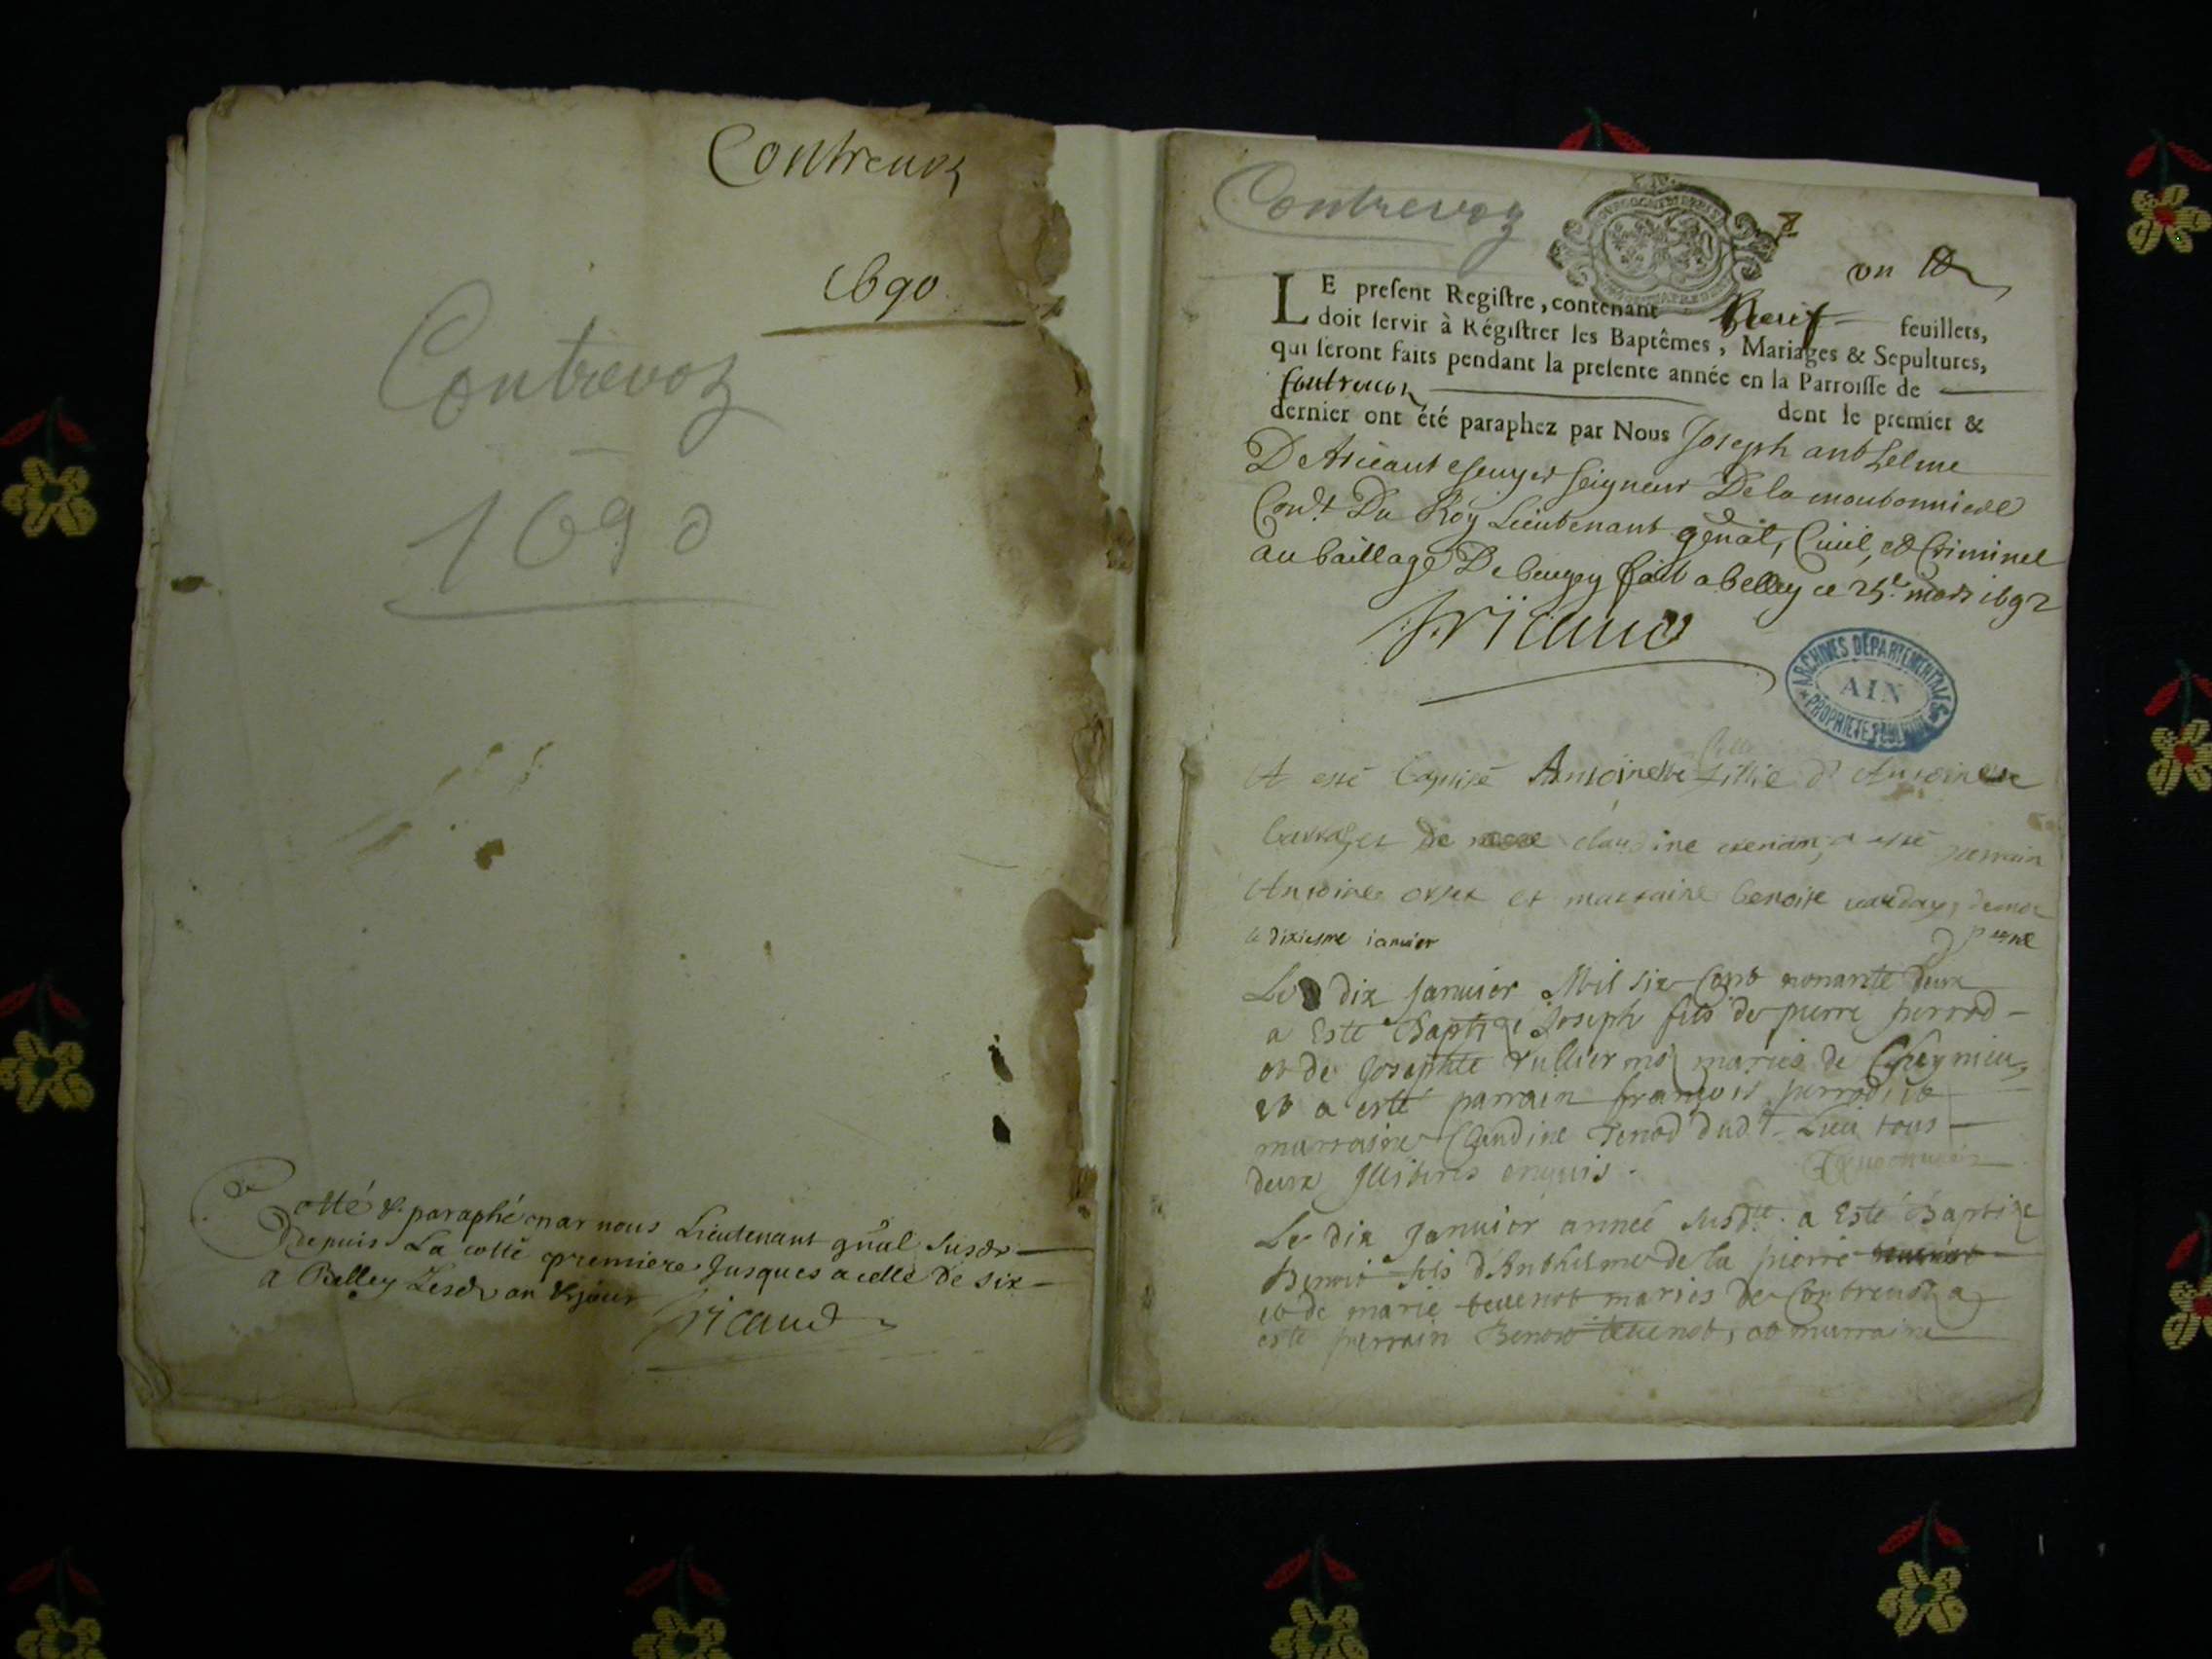 Contrevoz
1690
Contrevoz
1690
Cotté & paraphé par nous Lieutenant gnal susdt
depuis La cotte premiere Jusques a celle de six
A Belley Lesdt an & jour
Tricaud
Contrevoz
un
LE present Registre, contenant Neuf feuillets,
doit servir à Régistrer les Baptêmes, Mariages & Sepultures,
qui seront faits pendant la presente année en la Parroisse de
Contrevoz dont le premier &
dernier ont été paraphez par Nous Joseph anthelme
De tricaut escuyer seigneur De la
Du Roy Lieutenant gnal, Civil, et Criminel
au baillage De beugey fait a belley ce 25e mars 1692
Tricaud
ARCHIVES DÉPARTEMENTALES
AIN
PROPRIÉTÉ PUBLIQUE
A esté baptisé Antoinette fillie d'Antoine
De claudine a esté perrain
Antoine et marraine benoite
le dixiesme ianvier
Le dix Janvier Mil six Cent nonante deux
a Esté Baptizé Joseph fils de pierre perrod
et de Josephte rullier mariés de Cheignieu,
et a esté parrain françois perrod, et
marraine Claudine dudt Lieu tous
deux Illiteres enquis.
Le dix Janvier année susdte a Esté Baptizé
Benoit fils d'Anthelme de la pierre
et de marie tevenot mariés de Contrevoz a
esté perrain Benoit tevenot, et marraine